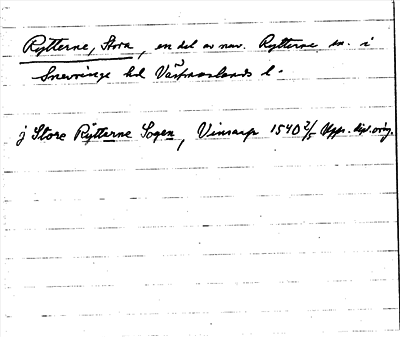 Rytterne, Stora, en del av nuv. Rytterne sn. i
Snevringe hd Västmanlands l.
j Store Rytterne Sogen, Vinsarp 1540 2/5 Upps. dipl. orig.